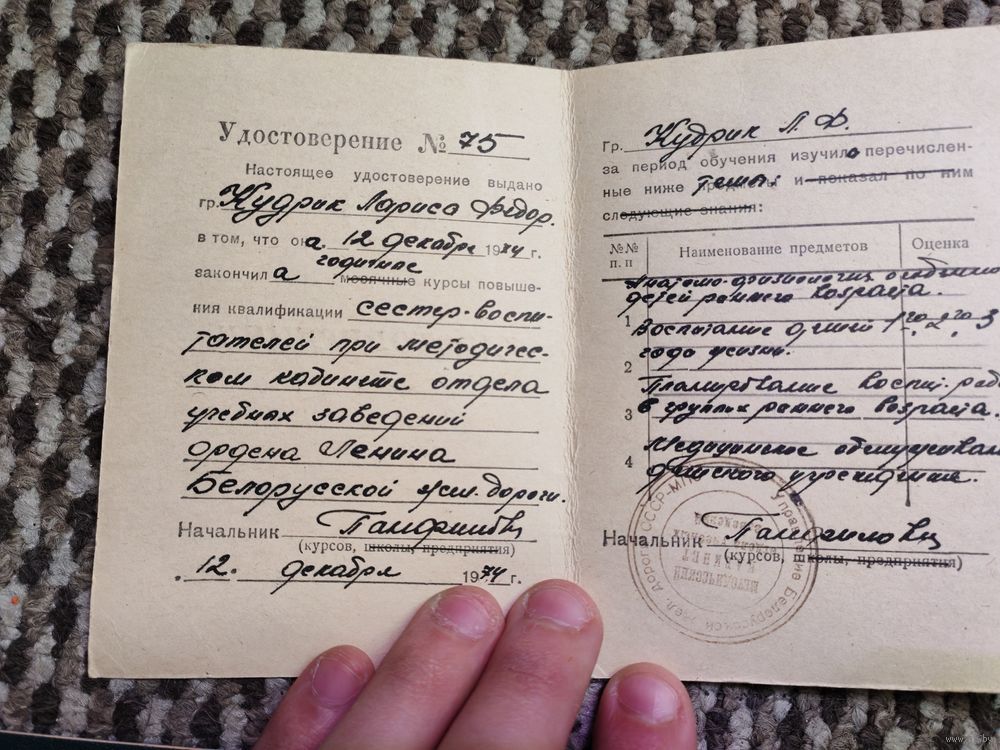 Удостоверение № 75
Настоящее удостоверение выдано
гр. Кудрик Лариса Федор.
в том, что она 12 декабря 1974 г.
годичные
закончила месячные курсы повыше-
ния квалификации сестер-воспи-
тателей при методичес-
ком кабинете отдела
учебных заведений
ордена Ленина
Белорусской жел. дороги.
Начальник
(курсов, школы, предприятия)
12. декабря 1974 г.
Гр. Кудрик Л. Ф.
за период обучения изучила перечислен-
ные ниже предметы темы и показал по ним
следующие знания:
№№ п. п Наименование предметов Оценка
Анатомо-физиология
детей раннего возраста.
1 Воспитание детей 1го, 2го, 3
года жизни.
2 Планирование воспит. раб
3 в группах раннего возраста.
4 Медицинское обслуживан
детского учреждения.
Начальник
(курсов, школы, предприятия)
СССР-МПС Управление Белорусской жел. дороги
МЕТОДИЧЕСКИЙ КАБИНЕТ